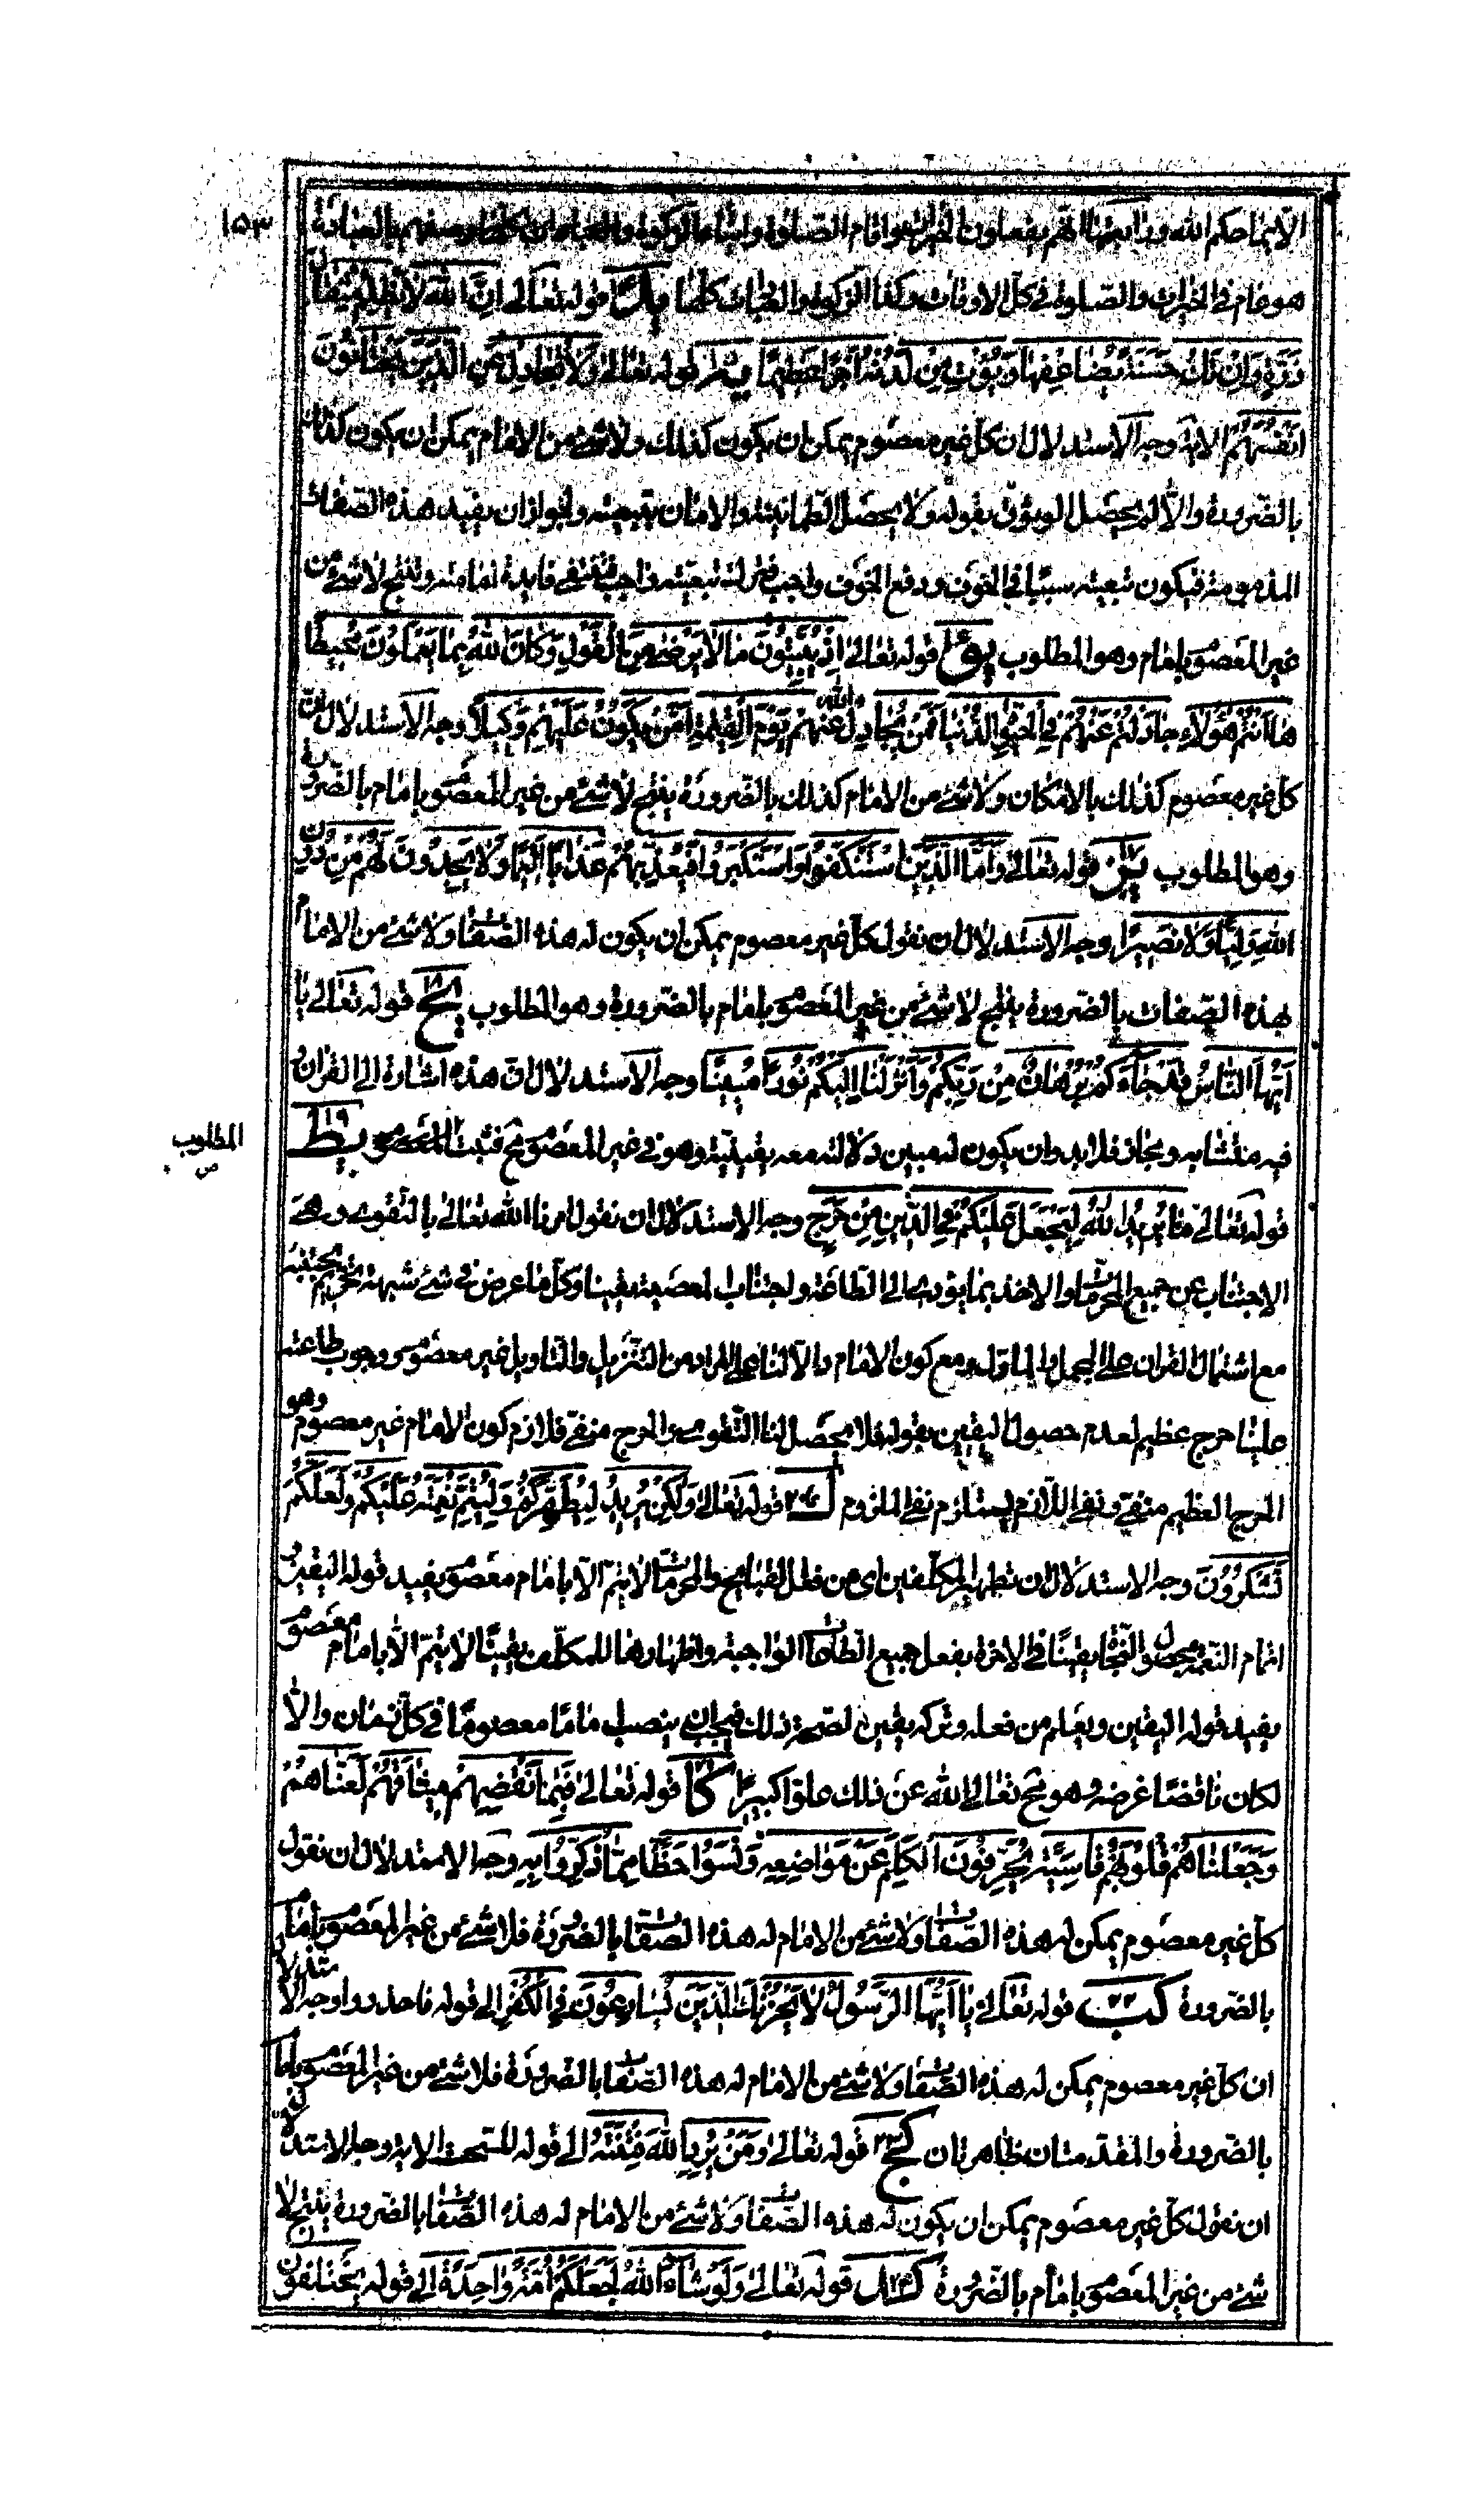 ١٥٣
الا بما حكم الله ورابعها انهم يفعلون الخيرات واقام الصلوة وايتاء الزكوة
هو عام فى الخيرات والصلوة فى كل الاوقات وكذا الزكوة والطاعات كلها يد قوله تعالى اِنَّ اللهَ لا يَظْلِمُ مِثْقالَ
ذَرَّةٍ وَاِنْ تَكُ حَسَنَةً يُضاعِفْها وَيُؤْتِ مِنْ لَدُنْهُ اَجْرًا عَظيمًا قوله تعالى وَلا تُجادِلْ عَنِ الَّذينَ يَخْتانُونَ
اَنْفُسَهُمْ الاية وجه الاستدلال ان كل غير معصوم يمكن ان يكون كذلك ولا شئ من الامام يمكن ان يكون كذلك
بالضرورة والا لم يحصل الوثوق بقوله ولا يحصل الطمانينة والامان بتبعيته ولجواز ان يفيد هذه الصفات
المذمومة فيكون تبعيته سببا فى الخوف ودفع الخوف واجب فترك تبعيته واجب فينتفى فايدة امامته وينتج لا شئ من
غير المعصوم بامام وهو المطلوب يو قوله تعالى اِذْ يُبَيِّتُونَ ما لا يَرْضى مِنَ الْقَوْلِ وَكانَ اللهُ بِما يَعْمَلُونَ مُحيطًا
ها اَنْتُمْ هؤُلاءِ جادَلْتُمْ عَنْهُمْ فِى الْحَيوةِ الدُّنْيا فَمَنْ يُجادِلُ الله عَنْهُمْ يَوْمَ الْقِيمَةِ اَمْ مَنْ يَكُونُ عَلَيْهِمْ وَكيلاً وجه الاستدلال ان
كل غير معصوم كذلك بالامكان ولا شئ من الامام كذلك بالضرورة ينتج لا شئ من غير المعصوم بامام بالضرورة
وهو المطلوب يز قوله تعالى وَاَمَّا الَّذينَ اسْتَنْكَفُوا وَاسْتَكْبَرُوا فَيُعَذِّبُهُمْ عَذابًا اَليمًا وَلا يَجِدُونَ لَهُمْ مِنْ دُونِ
اللهِ وَلِيًّا وَلا نَصيرًا وجه الاستدلال ان نقول كل غير معصوم يمكن ان يكون له هذه الصفات ولا شئ من الامام
بهذه الصفات بالضرورة ينتج لا شئ من غير المعصوم بامام بالضرورة وهو المطلوب يح قوله تعالى يا
اَيُّهَا النّاسُ قَدْ جاءَكُمْ بُرْهانٌ مِنْ رَبِّكُمْ وَاَنْزَلْنا اِلَيْكُمْ نُورًا مُبينًا وجه الاستدلال ان هذه اشارة الى القران
فيه متشابه ومجاز فلا بد وان يكون له مبين دلالته معه يقينية وهو فى غير المعصوم مح فثبت المعصوم يط
المطلوب ص
قوله تعالى ما يُريدُ اللهُ لِيَجْعَلَ عَلَيْكُمْ فِى الدّينِ مِنْ حَرَجٍ وجه الاستدلال ان نقول امرنا الله تعالى بالتقوى وهى
الاجتناب عن جميع المحرمات والاخذ بما يؤدى الى الطاعة واجتناب المعصية يقينا وكل ما عرض فى شئ شبهة تحريم يجتنبه
مع اشتمال القران على المجمل والمأول ومع كون الامام والا لنا على المراد من التنزيل والتاويل غير معصوم ووجوب طاعته
علينا حرج عظيم لعدم حصول اليقين بقوله فلا يحصل لنا التقوى والحرج منفى فلازم كون الامام غير معصوم وهو
الحرج العظيم منفى ونفى اللازم يستلزم نفى الملزوم ك٢٠ قوله تعالى وَلكِنْ يُريدُ لِيُطَهِّرَكُمْ وَلِيُتِمَّ نِعْمَتَهُ عَلَيْكُمْ وَلَعَلَّكُمْ
تَشْكُرُونَ وجه الاستدلال ان تطهير المكلفين اى من فعل القبايح والمحرمات لا يتم الا بامام معصوم يفيد قوله اليقين و
اتمام النعمة بحصول النجاة يقينًا فى الاخرة بفعل جميع الطاعات الواجبة واظهارها للمكلف يقينًا لا يتم الا بامام معصوم
يفيد قوله اليقين ويعلم من فعله وتركه يقين لصحة ذلك فيجب ان ينصب امامًا معصومًا فى كل زمان والا
لكان ناقضًا غرضه وهو مح تعالى الله عن ذلك علوا كبيرًا كا قوله تعالى فَبِما نَقْضِهِمْ ميثاقَهُمْ لَعَنّاهُمْ
وَجَعَلْنا قُلُوبَهُمْ قاسِيَةً يُحَرِّفُونَ الْكَلِمَ عَنْ مَواضِعِهِ وَنَسُوا حَظًّا مِمّا ذُكِّرُوا بِهِ وجه الاستدلال ان نقول
كل غير معصوم يمكن له هذه الصفات ولا شئ من الامام له هذه الصفات بالضرورة فلا شئ من غير المعصوم بامام
بالضرورة كب٢٢ قوله تعالى يا اَيُّهَا الرَّسُولُ لا يَحْزُنْكَ الَّذينَ يُسارِعُونَ فِى الْكُفْرِ الى قوله فاحذروا وجه الاستدلال
ان كل غير معصوم يمكن له هذه الصفات ولا شئ من الامام له هذه الصفات بالضرورة فلا شئ من غير المعصوم بامام
بالضرورة والمقدمتان ظاهرتان كج٢٣ قوله تعالى وَمَنْ يُرِدِ اللهُ فِتْنَتَهُ الى قوله للسحت الاية وجه الاستدلال
ان نقول كل غير معصوم يمكن ان يكون له هذه الصفات ولا شئ من الامام له هذه الصفات بالضرورة ينتج لا
شئ من غير المعصوم بامام بالضرورة كد٢٤ قوله تعالى وَلَوْ شاءَ اللهُ لَجَعَلَكُمْ اُمَّةً واحِدَةً الى قوله تختلفون